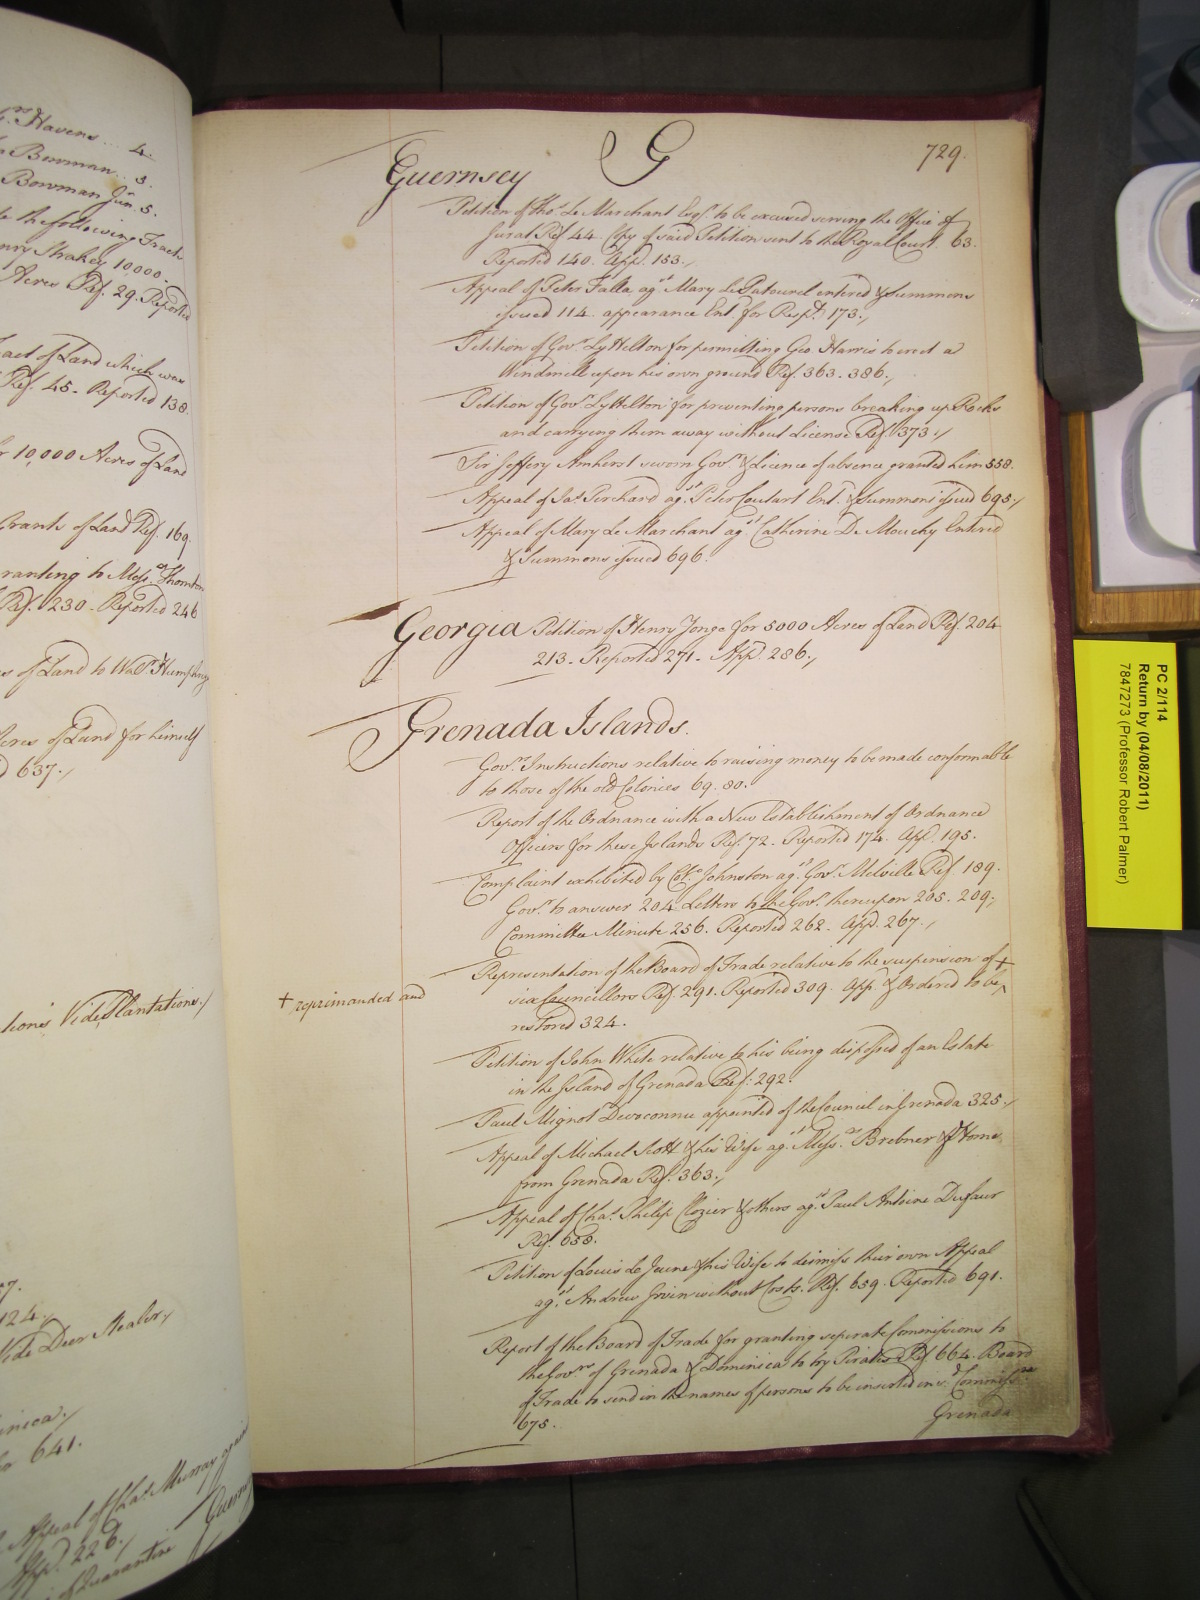 rs. Havens ... 4.
Bowman .. 3.
Bowman Junr. 5.
the following Tracts
Henry Strakey 10000.
Acres Ref. 29. Reported
Tract of Land which was
Ref. 45 - Reported 138.
10,000 Acres of Land
Grants of Land Ref. 169.
granting to Messrs. Thornton
Ref. 230 - Reported 246
of Land to Willm. Humphry
Acres of Land for himself
637.
Vide Plantations.
124.
Vide Deer Stealers
641.
Appeal of Chas. Murray against
App. 226.
of Quarantine
Guernsey
G
729.
Guernsey
Petition of Thos. Le Marchant Esqr. to be excused serving the Office of
Jurat Ref. 44. Copy of said Petition sent to the Royal Court. 63.
Reported 140. App. 153.
Appeal of Peter Falla agst. Mary Le Patourel entered & Summons
issued 114. appearance Ent. for Respt. 173.
Petition of Govr. Lyttelton for permitting Geo. Harris to erect a
Windmill upon his own ground Ref. 363. 386.
Petition of Govr. Lyttelton for preventing persons breaking up Rocks
and carrying them away without License Ref. 373.
Sir Jeffery Amherst sworn Govr. & Licence of absence granted him 558.
Appeal of Jas. Perchard agst. Peter Coutart Ent. & Summons issued 695.
Appeal of Mary Le Marchant agst. Catherine De Mouchy Entered
& Summons issued 696.
Georgia Petition of Henry Yonge for 5000 Acres of Land Ref. 204
213 - Reported 271 - App. 286.
Grenada Islands.
Govrs. Instructions relative to raising money to be made conformable
to those of the old Colonies 69. 80.
Report of the Ordnance with a New Establishment of Ordnance
Officers for these Islands Ref. 72. Reported 174. App. 195.
Complaint exhibited by Coll. Johnston agst. Govr. Melville Ref. 189.
Govr. to answer 204. Letters to the Govr. thereupon 205. 209.
Committee Minute 256. Reported 262. App. 267.
Representation of the Board of Trade relative to the suspension of +
six Councillors Ref. 291. Reported 309. App. & Ordered to be ^
+ reprimanded and
restored 324.
Petition of John White relative to his being dispossed of an Estate
in the Island of Grenada Ref: 292.
Paul Mignot Devoconnu appointed of the Council in Grenada 325.
Appeal of Michael Scott & his Wife agst. Messrs. Brebner & Home
from Grenada Ref. 363.
Appeal of Chas. Philip Clozier & others agst. Paul Antoine Dufaur
Ref. 658.
Petition of Louis Le Jeune & his Wife to dismiss their own Appeal
agst. Andrew Irwin without Costs. Ref. 659. Reported 691.
Report of the Board of Trade for granting seperate Commissions to
the Govrs. of Grenada & Dominica to try Pirates Ref. 664. Board
of Trade to send in the names of persons to be inserted in sd. Commissns.
675.
Grenada
PC 2/114
Return by (04/08/2011)
7847273 (Professor Robert Palmer)